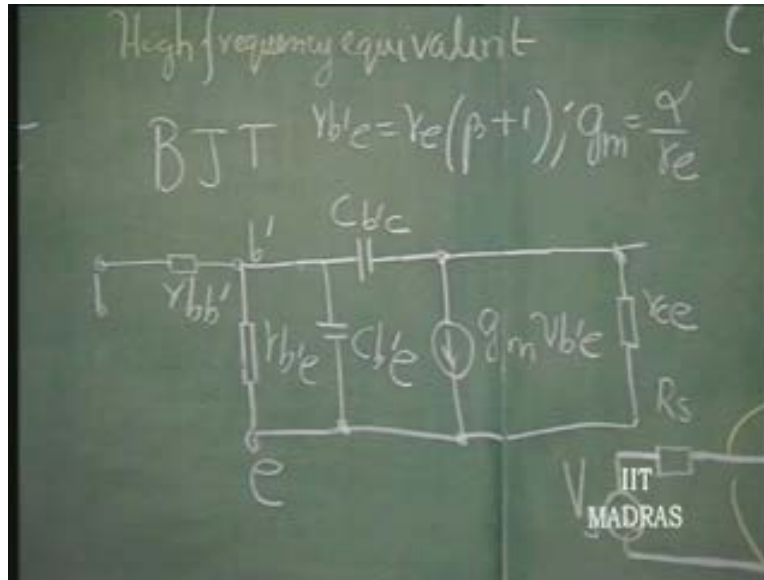 High frequency equivalent
C
BJT rb'e = re(β+1); gm = α/re
Cb'c
b'
b
rbb'
rb'e
Cb'e
gm vb'e
rce
e
Rs
Vs
IIT
MADRAS